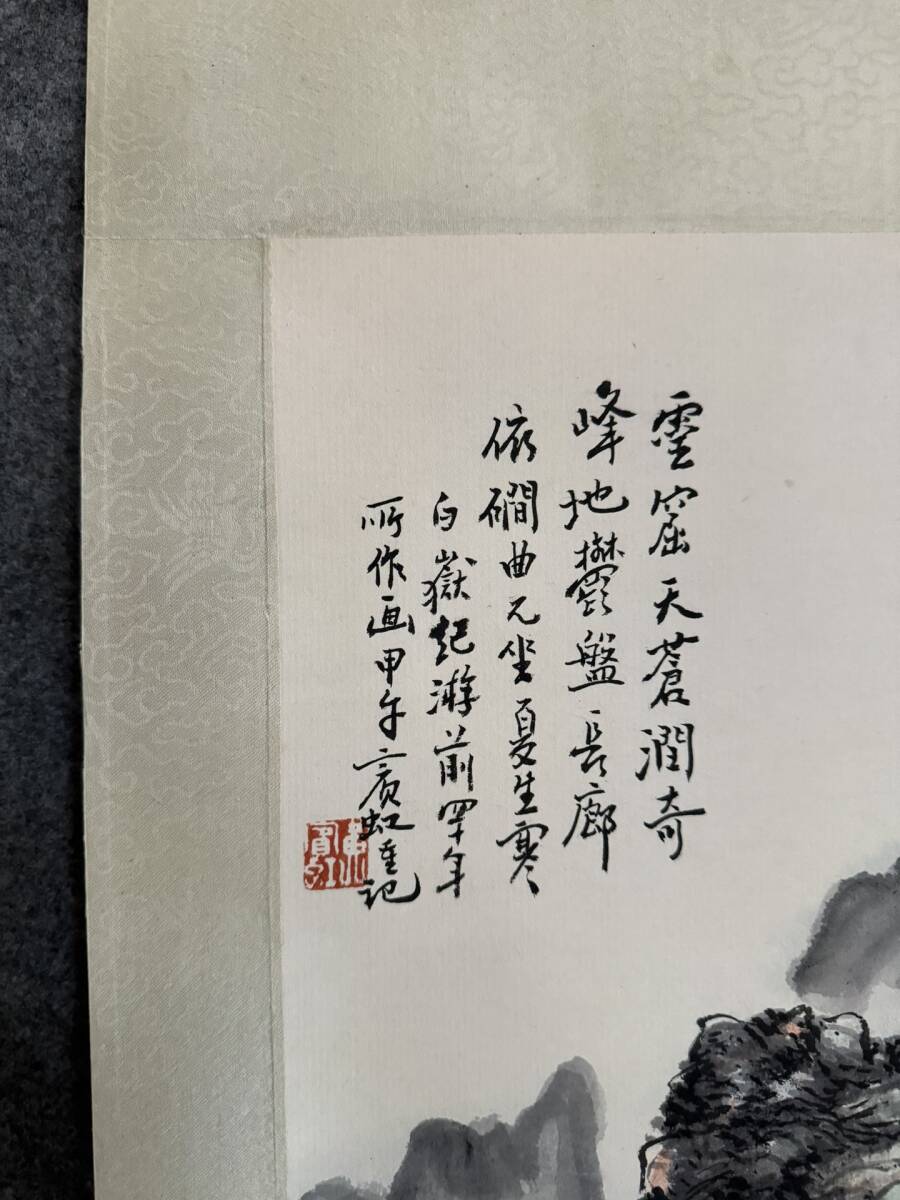 靈窟天蒼潤奇
峰地鬱盤長廊
依磵曲兀坐夏生寒
白嶽起游前罕年
所作画甲午賓虹重記
黃賓虹